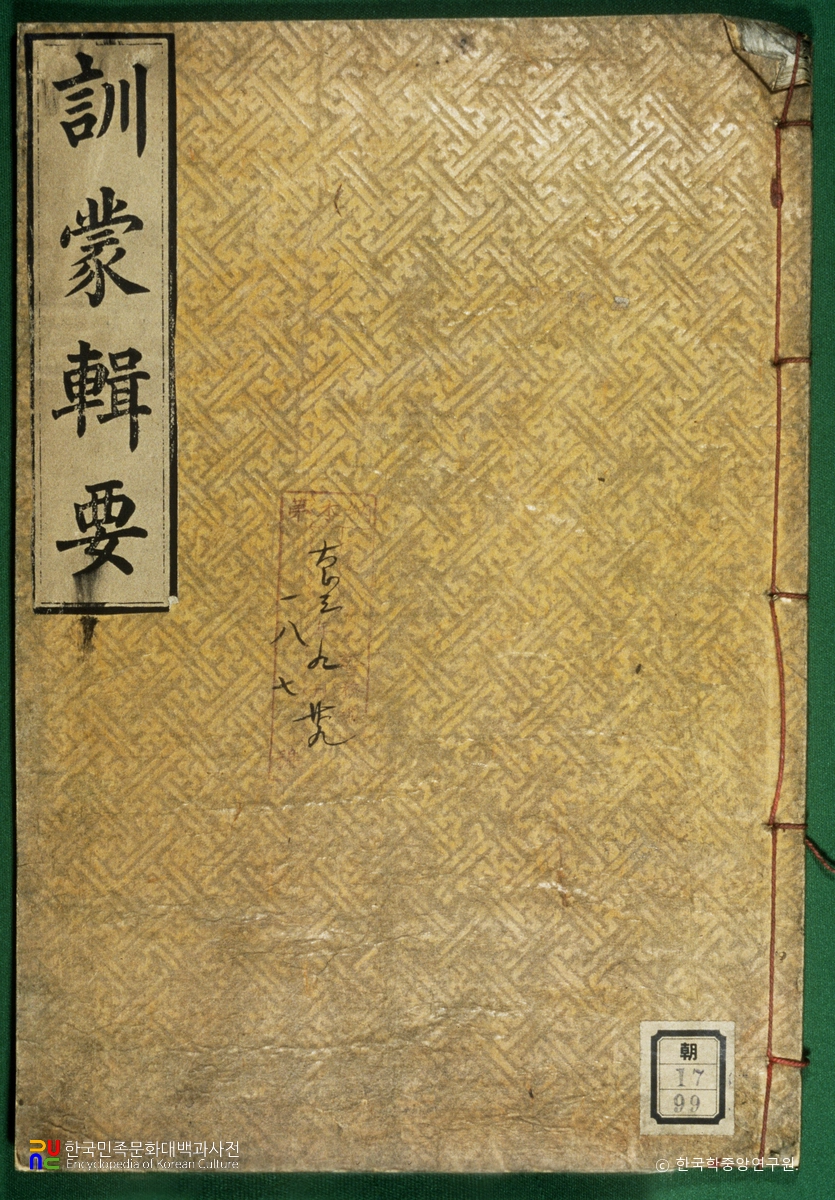 訓蒙輯要
古 三 九 廿九
一八七
朝
17
99
한국민족문화대백과사전
Encyclopedia of Korean Culture
© 한국학중앙연구원